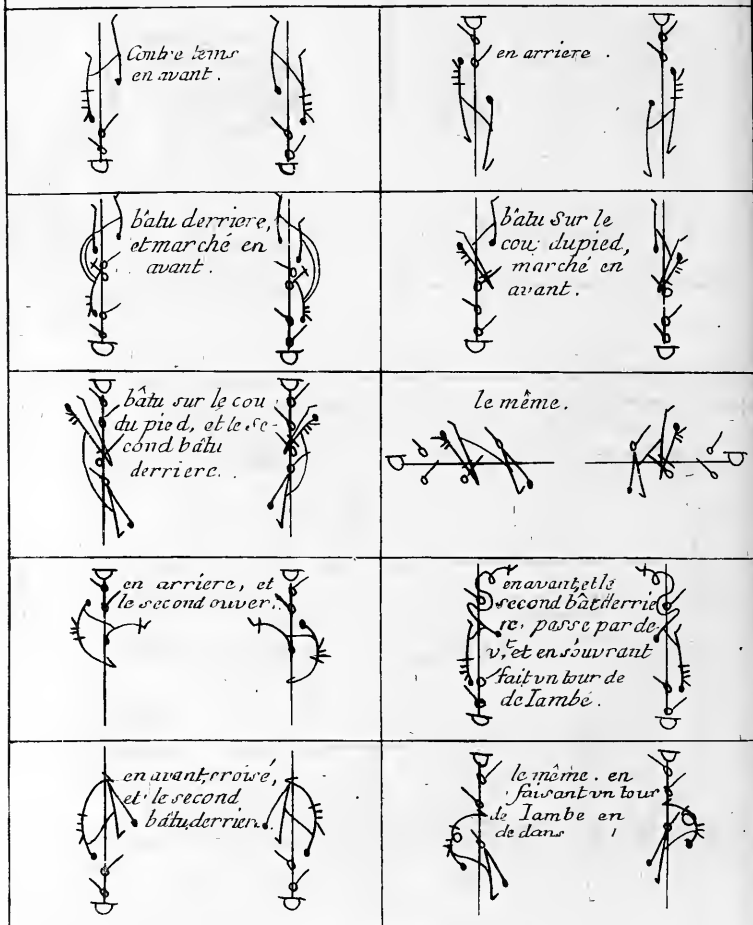 Contre tems
en avant.
en arriere.
bâtu derriere,
et marché en
avant.
bâtu sur le
cou du pied,
marché en
avant.
bâtu sur le cou
du pied, et le se-
cond bâtu
derriere.
le même.
en arriere, et
le second ouver.
en avant, et le
second bât derrie
re, passe par de-
v,t et en s'ouvrant
fait vn tour de
de Iambe.
en avant, croisé,
et le second
bâtu, derrien.
le même. en
faisant vn tour
de Iambe en
de dans